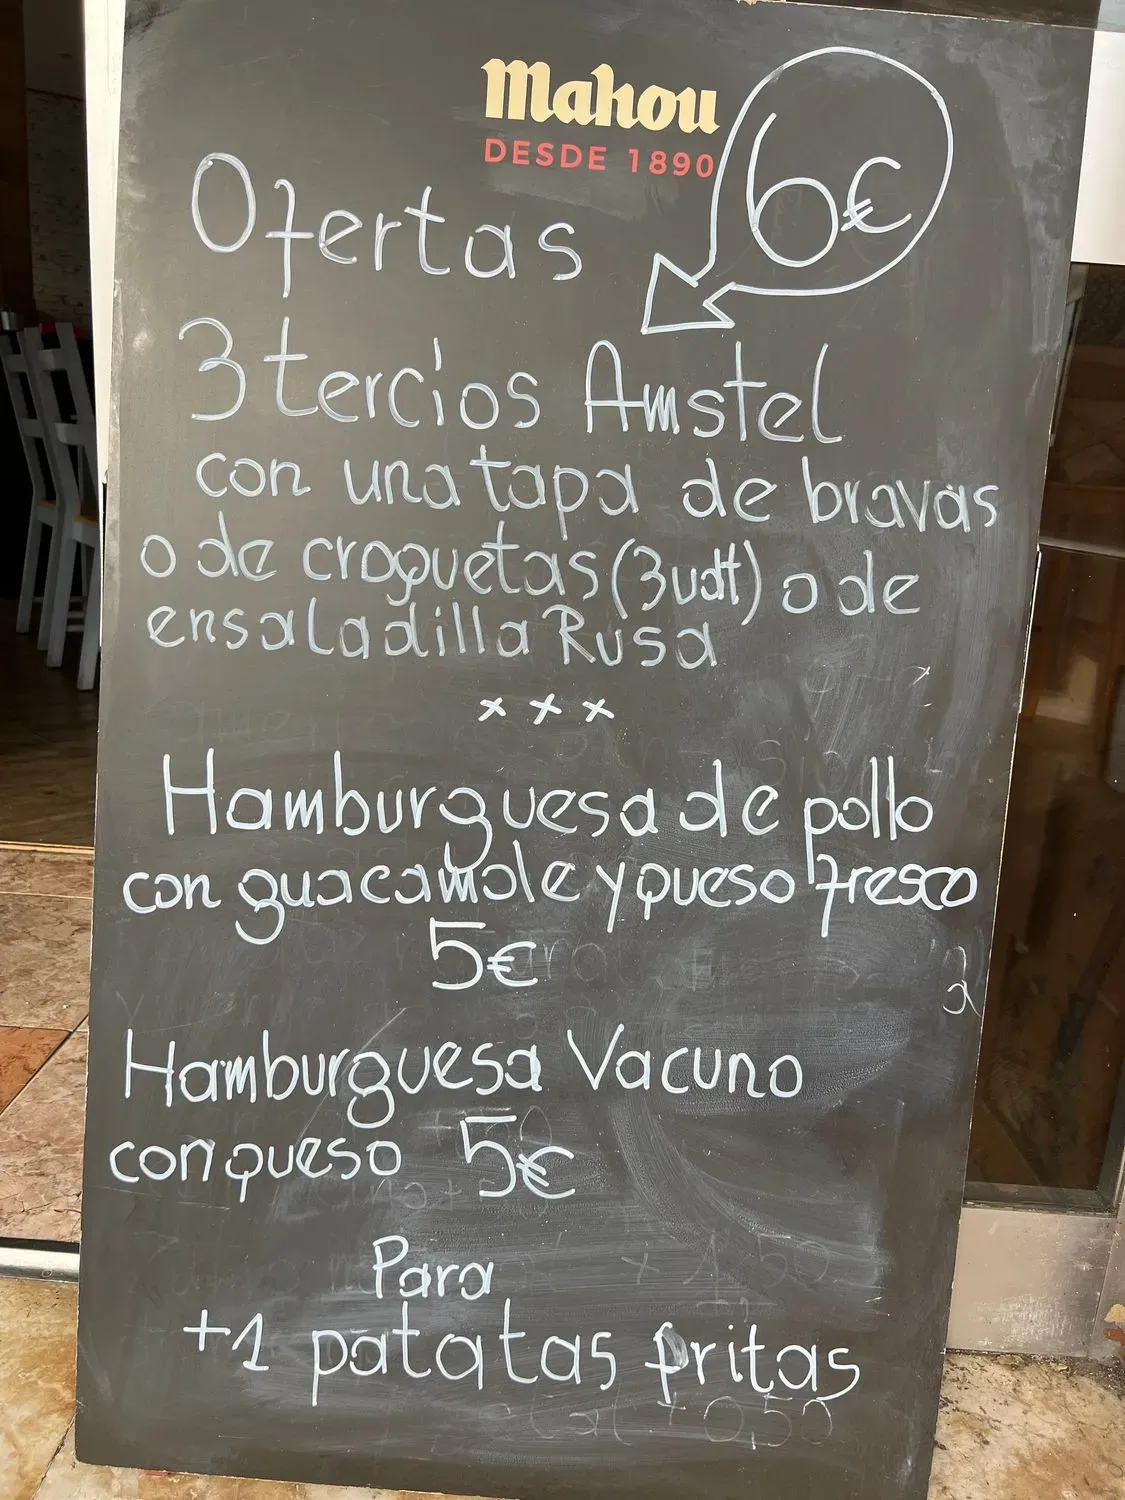 Mahou
DESDE 1890
6€
Ofertas
3 tercios Amstel
con una tapa de bravas
o de croquetas (3 udt) o de
ensaladilla Rusa
x x x
Hamburguesa de pollo
con guacamole y queso fresco
5€
Hamburguesa Vacuno
con queso 5€
Para
+1 patatas fritas